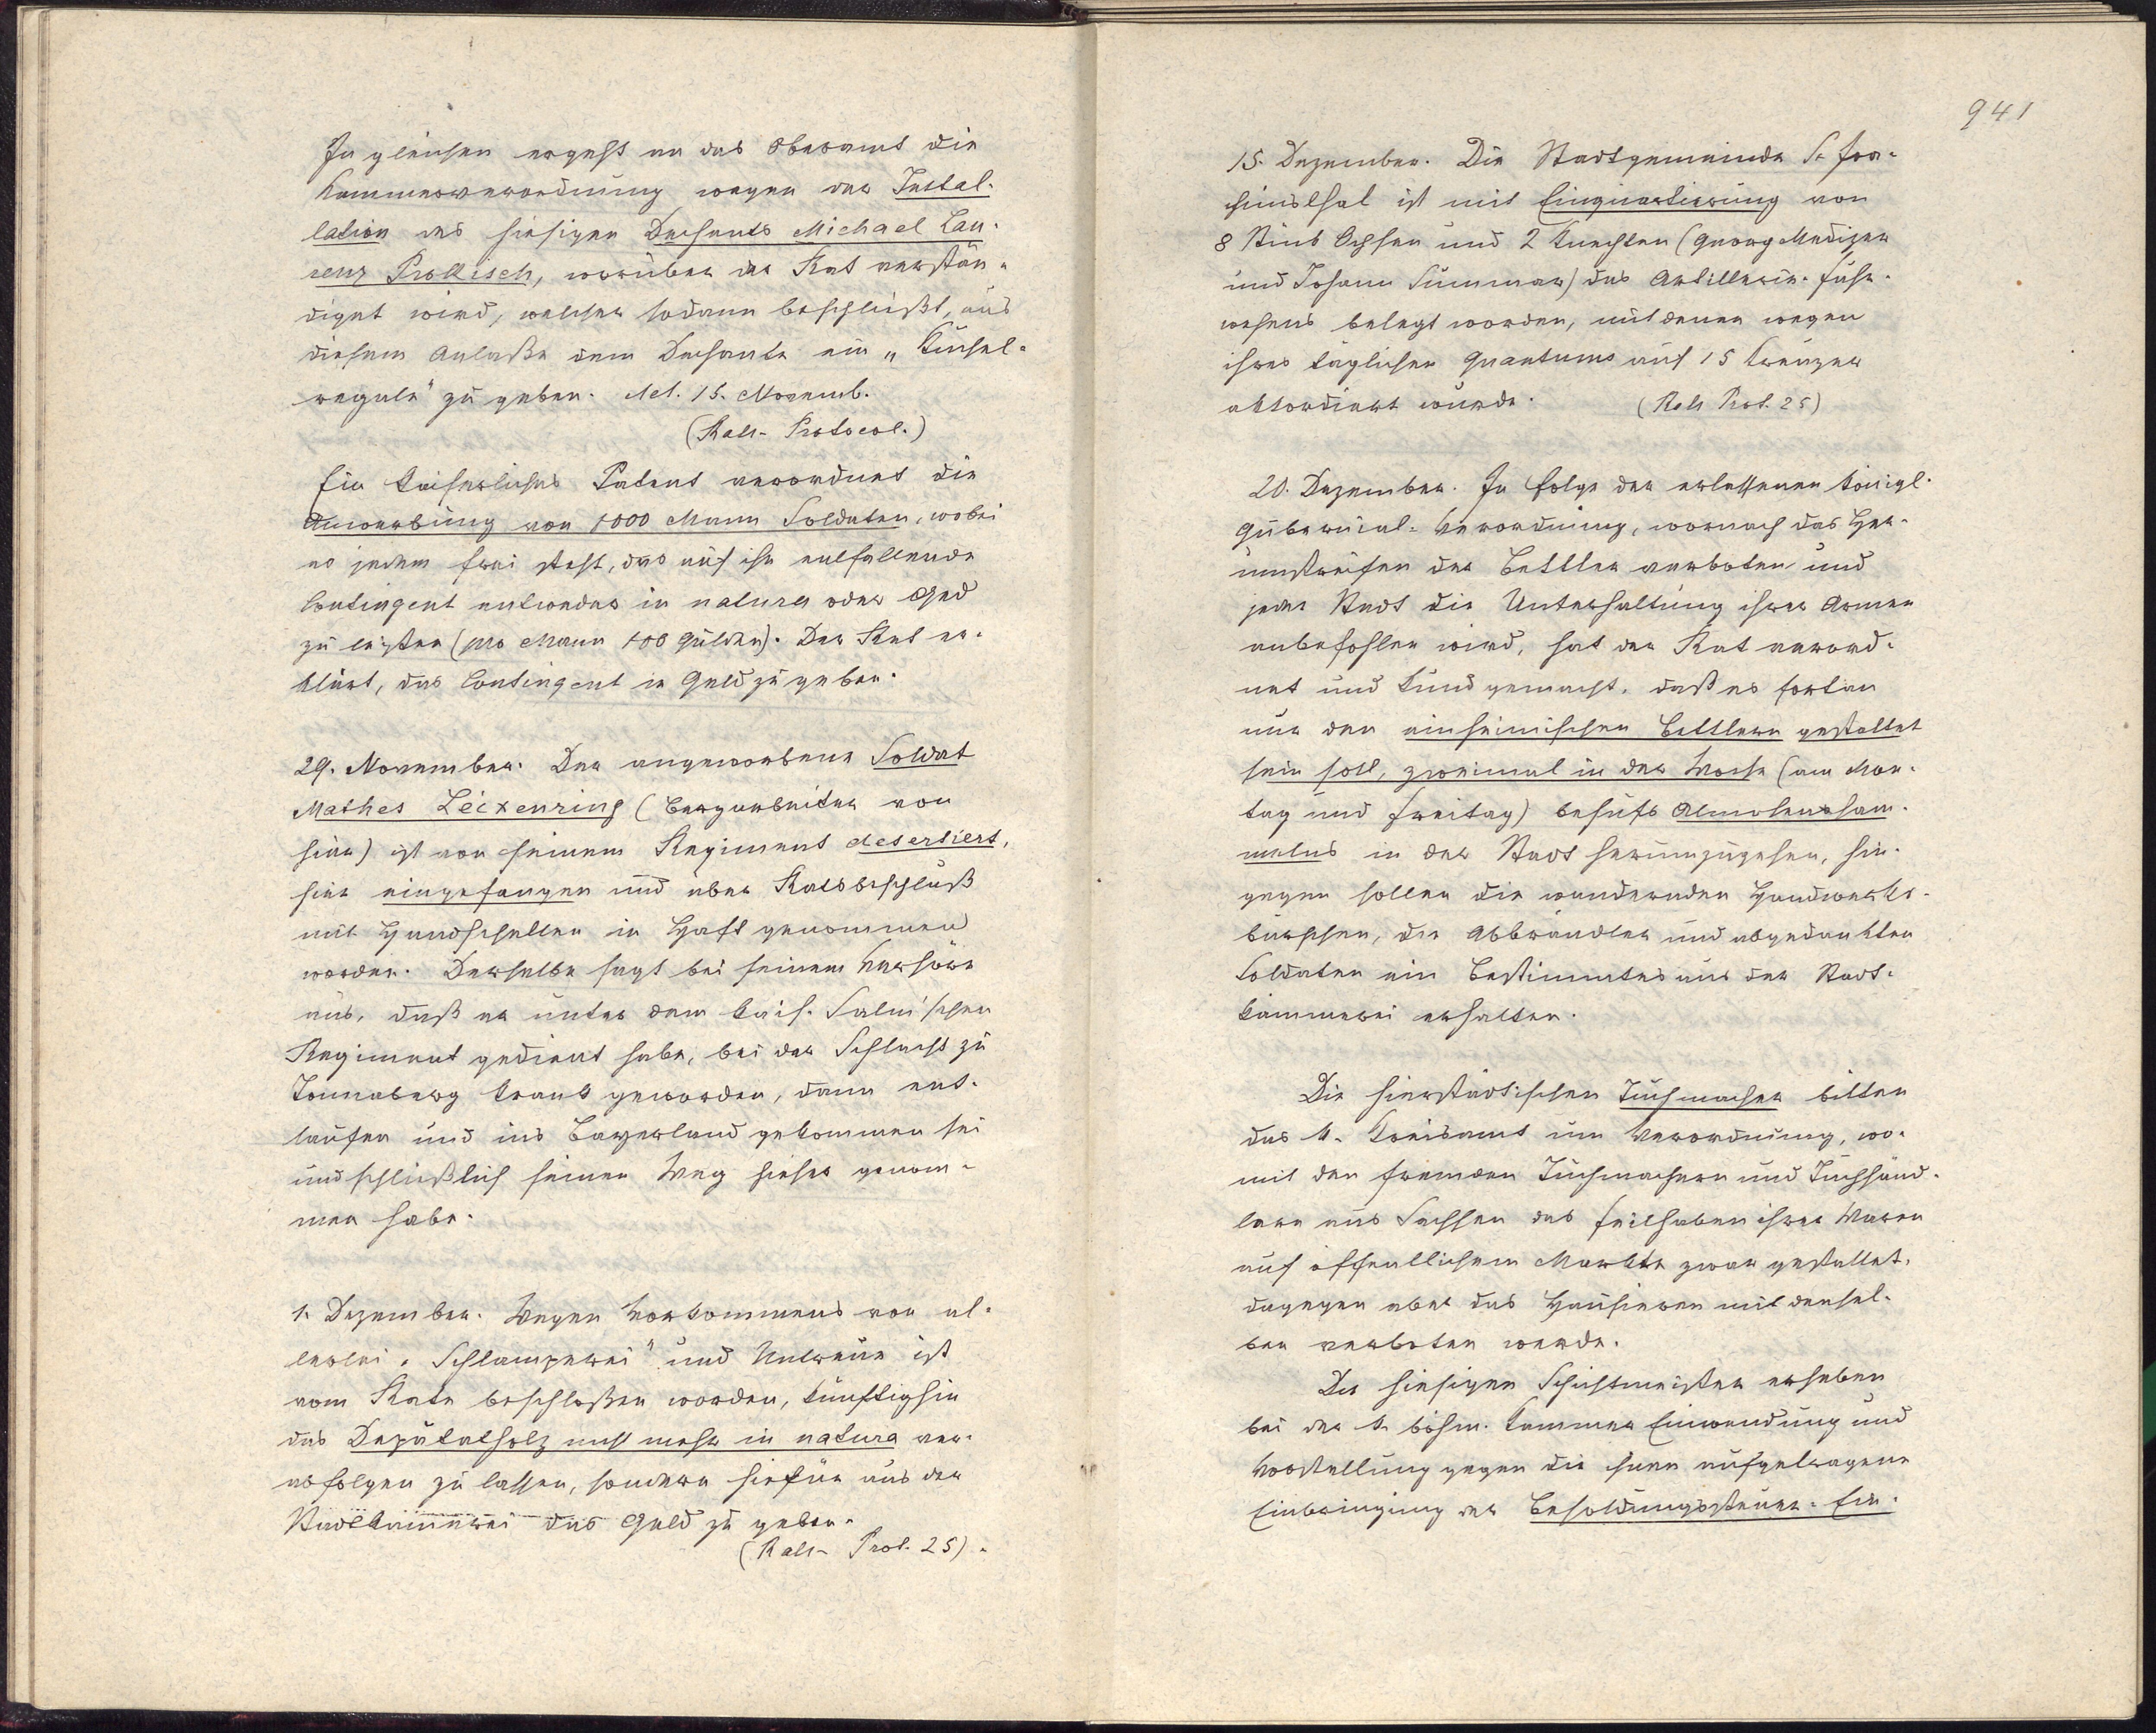 In gleichen ergeht an das Oberamt die
Kammerverordnung wegen der Instal-
lation des hiesigen Dechants Michael Lau-
renz Prollisch, worüber der Rat verstän-
digt wird, welcher sodann beschließt, aus
diesem Anlaße dem Dechante ein „Küchel-
regale" zu geben. Act. 15. Novemb.
(Rats-Protocol.)
Ein kaiserliches Patent verordnet die
Anwerbung von 1000 Mann Soldaten, wobei
es jedem frei steht, das auf ihn entfallende
Contingent entweder in natura oder Geld
zu leisten (pro Mann 100 Gulden). Der Rat er-
klärt, das Contingent in Geld zu geben.
29. November. Der angeworbene Soldat
Mathes Leixenring (Bergarbeiter von
hier) ist von seinem Regiment desertiert,
hier eingefangen und über Ratsbeschluß
mit Handschellen in Haft genommen
worden. Derselbe sagt bei seinem Verhöre
aus, daß er unter dem kais. Salm'schen
Regiment gedient habe, bei der Schlacht zu
krank geworden, dann ent-
laufen und ins Bayerland gekommen sei
und schließlich seinen Weg hieher genom-
men habe.
1. Dezember. Wegen Vorkommens von al-
lerlei „Schlamperei" und Untreue ist
vom Rate beschloßen worden, künftighin
das Deputatholz nicht mehr in natura ver-
abfolgen zu lassen, sondern hiefür aus der
Stadtkämmerei das Geld zu geben.
(Rats-Prot. 25).
941
15. Dezember. Die Stadtgemeinde S. Joa-
chimsthal ist mit Einquartierung von
8 Stück Ochsen und 2 Knechten (Georg Medizer
und Johann Summar) des Artillerie-Fuhr-
wesens belegt worden, mit denen wegen
ihres täglichen Quantums auf 15 Kreuzer
akkordiert wurde. (Rats Prot. 25)
20. Dezember. In Folge der erlassenen königl.
Gubernial-Verordnung, wornach das Her-
umstreifen der Bettler verboten und
jeder Stadt die Unterhaltung ihrer Armen
anbefohlen wird, hat der Rat verord-
net und kund gemacht, daß es fortan
nur den einheimischen Bettlern gestattet
sein soll, zweimal in der Woche (am Mon-
tag und Freitag) behufs Almosensam-
melns in der Stadt herumzugehen, hin-
gegen sollen die wandernden Handwerks-
burschen, die Abbrändler und abgedankten
Soldaten ein Bestimmtes aus der Stadt-
kämmerei erhalten.
Die hierstädtischen Tuchmacher bitten
das k. Kreisamt um Verordnung, wo-
mit den fremden Tuchmachern und Tuchhänd-
lern aus Sachsen das Feilhaben ihrer Waren
auf öffentlichem Markte zwar gestattet,
dagegen aber das Hausieren mit densel-
ben verboten werde.
Die hiesigen Schichtmeister erheben
bei der k. böhm. Kammer Einwendung und
Vorstellung gegen die ihnen aufgetragene
Einbringung der Besoldungssteuer. Ein-